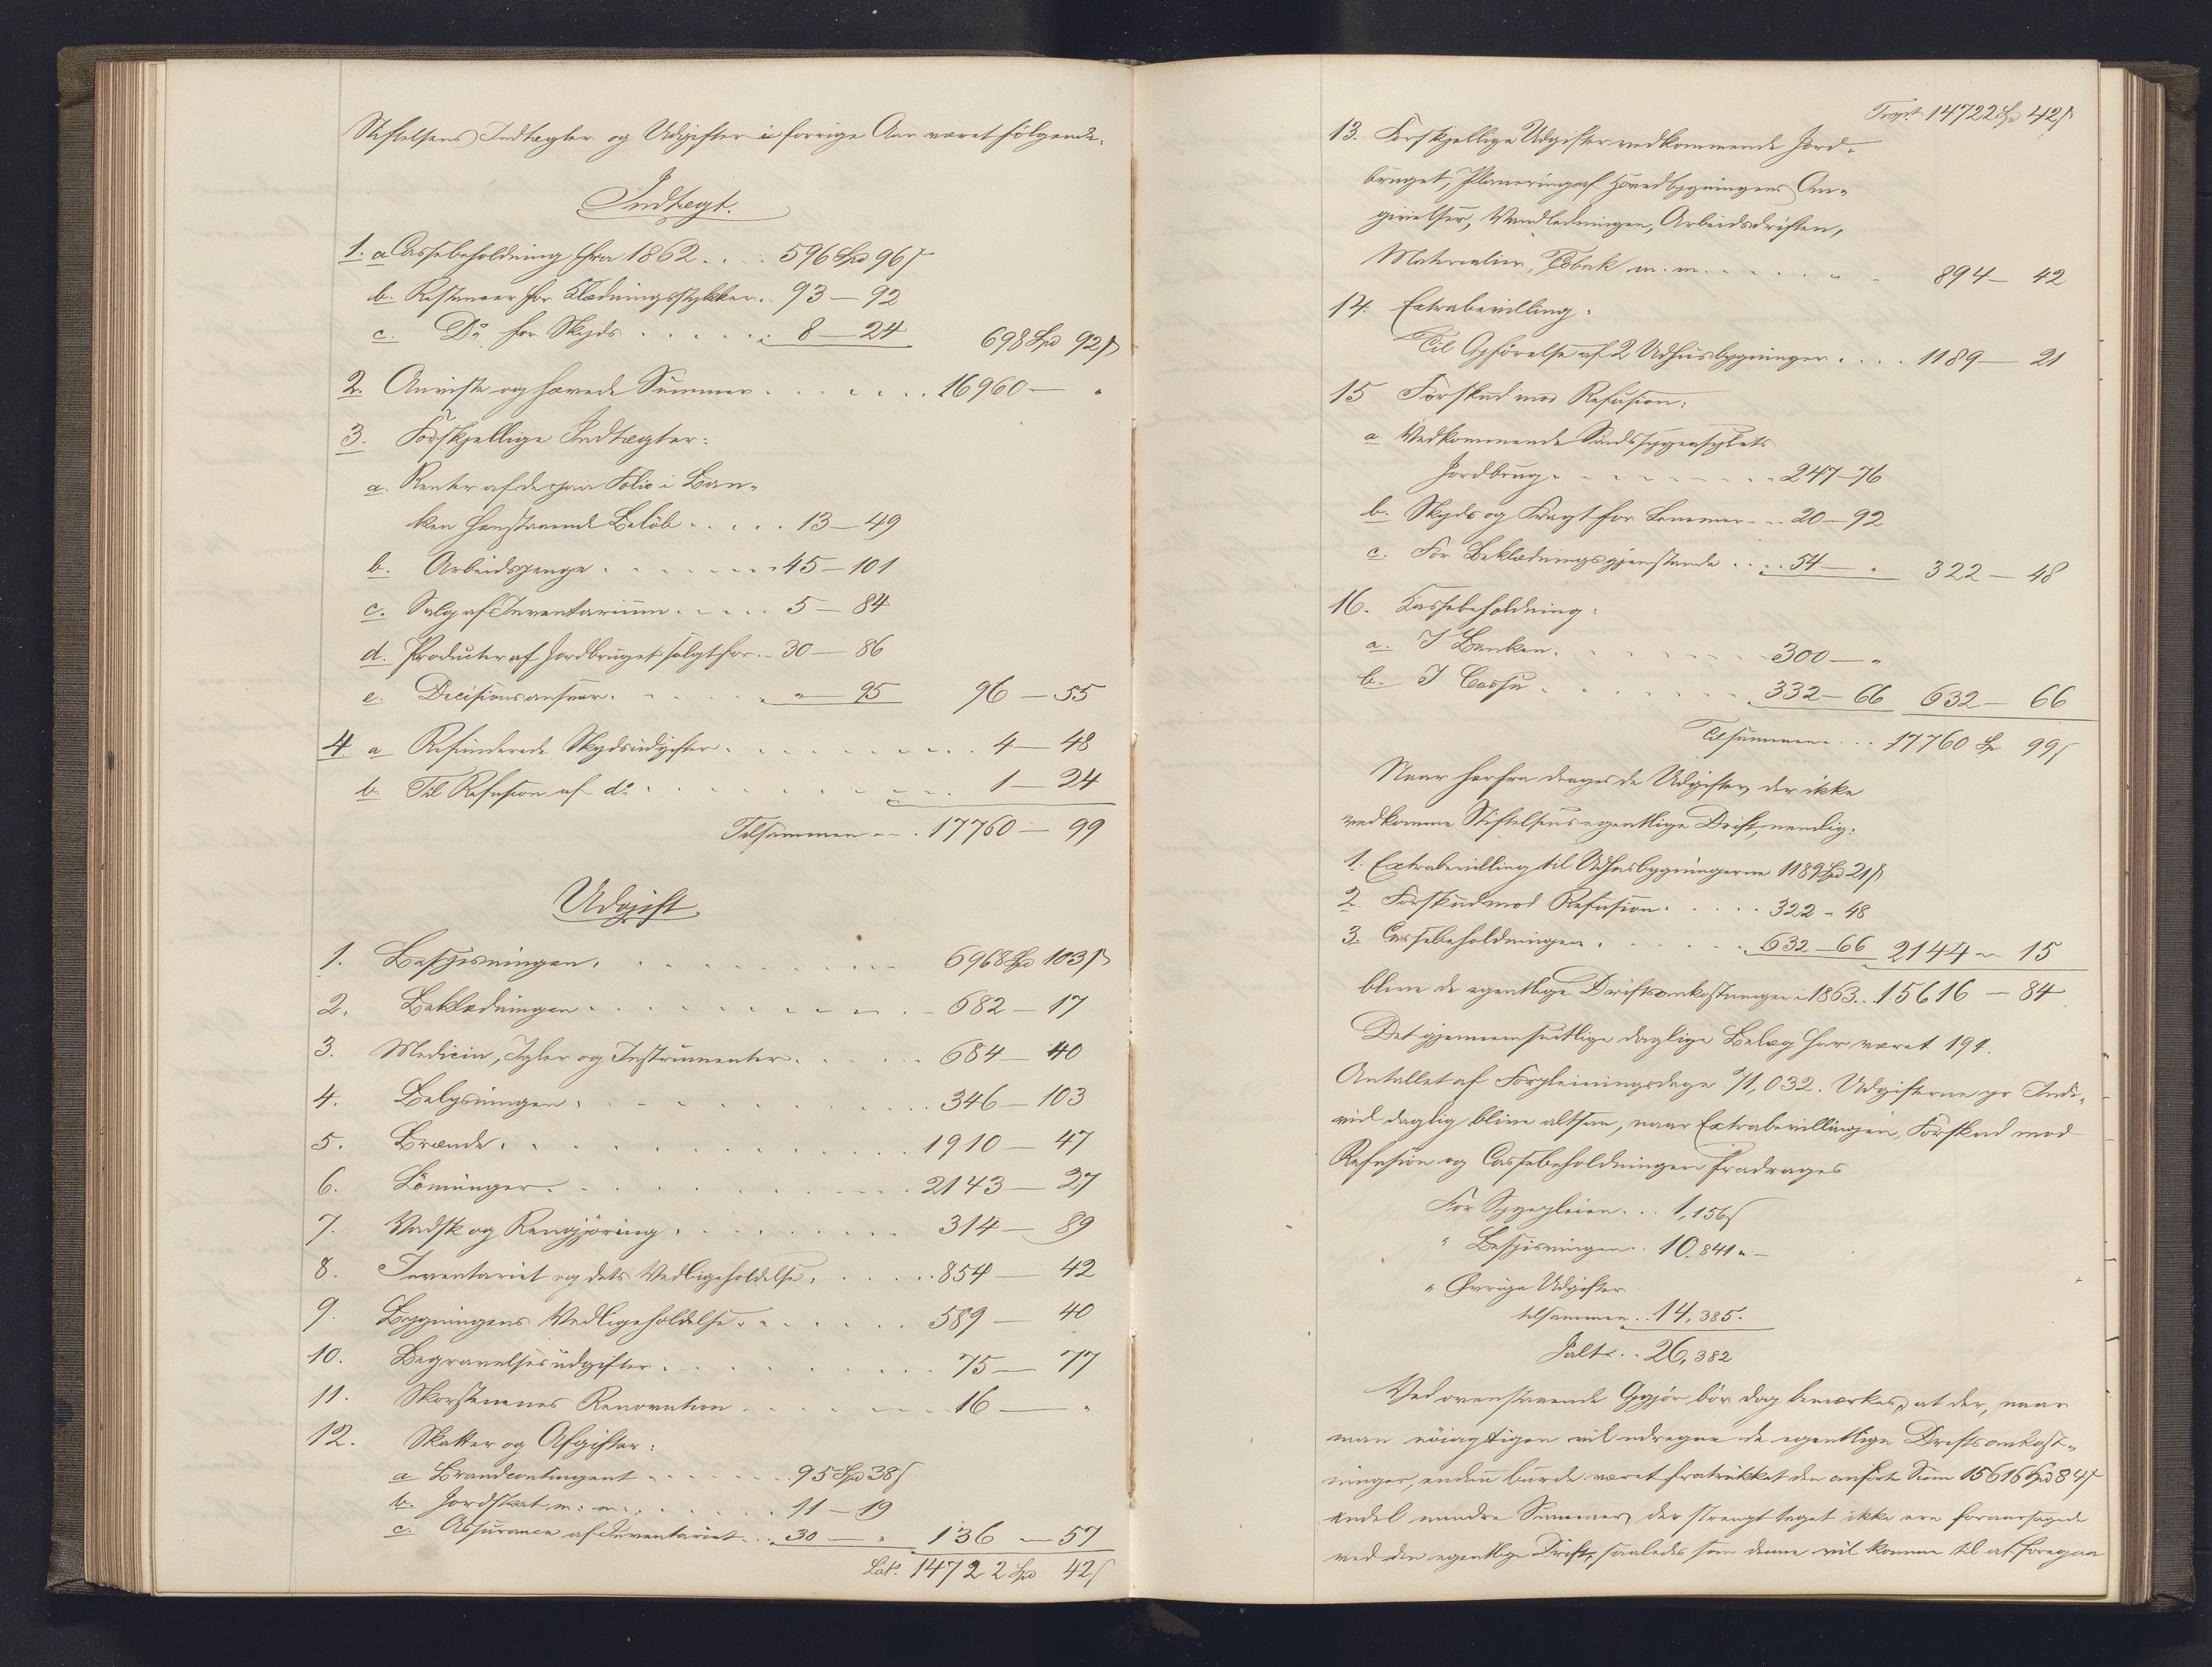 Stiftelsens Indtægter og Udgifter i forrige Aar været følgende.
Indtægt.
1. a Cassebeholdning fra 1862 . . . 596 Spd 96 ß
b. Restancer for Klædningsstykker . . 93 — 92
c. Do for Skyds . . . . . 8 — 24 698 Spd 92 ß
2. Anviste og hævede Summer . . . . . . 16960 — "
3. Forskjellige Indtægter:
a. Renter af de paa Folio i Ban-
ken henstaaende Beløb . . . . 13 — 49
b. Arbeidspenge . . . . . . 45 — 101
c. Salg af Inventarium . . . . 5 — 84
d. Producter af Jordbruget solgt for . . 30 — 86
e. Decisionsansvar . . . . . " — 95 96 — 55
4 a Refunderede Skydsudgifter . . . . . . . 4 — 48
b Til Refusion af do . . . . . . . . 1 — 24
Tilsammen . . . 17760 — 99
Udgift
1. Bespisningen . . . . . . . . . 6968 Spd 103 ß
2. Beklædningen . . . . . . . . . 682 — 17
3. Medicin, Igler og Instrumenter . . . . . 684 — 40
4. Belysningen . . . . . . . . . . 346 — 103
5. Brænde . . . . . . . . . . . 1910 — 47
6. Lönninger . . . . . . . . . . 2143 — 27
7. Vadsk og Rengjøring . . . . . . . 314 — 89
8. Inventariet og dets Vedligeholdelse . . . . . 854 — 42
9. Bygningens Vedligeholdelse . . . . . . 589 — 40
10. Begravelsesudgifter . . . . . . . . 75 — 77
11. Skorstenenes Renovation . . . . . . . 16 — "
12. Skatter og Afgifter:
a Brandcontingent . . . . . . 95 Spd 38 ß
b. Jordskat m. m. . . . . . . 11 — 19
c. Assurance af Inventariet . . . 30 — " 136 — 57
Lats. 14722 Spd 42 ß
Trspt. 14722 Spd 42 ß
13. Forskjellige Udgifter vedkommende Jord-
bruget, Planering af Hovedbygningens Om-
givelser, Vandledningen, Arbeidsdriften,
Materialier, Tobak m. m. . . . . . . 894 — 42
14. Extrabevilling:
Til Opførelse af 2 Udhusbygninger . . . . 1189 — 21
15 Forskud mod Refusion:
a. Vedkommende Sindssygeasylets
Jordbrug . . . . . . . . 247 — 76
b. Skyds og Fragt for Lemmer . . . 20 — 92
c. For Beklædningsgjenstande . . . 54 — " 322 — 48
16. Cassebeholdning:
a. I Banken . . . . . . . 300 — "
b. I Cassa . . . . . . . 332 — 66 632 — 66
Tilsammen . . . 17760 Sp 99 ß
Naar herfra drages de Udgifter, der ikke
vedkomme Stiftelsens egentlige Drift, nemlig:
1. Extrabevilling til Udhusbygningerne 1189 Spd 21 ß
2. Forskud mod Refusion . . . . 322 - 48
3. Cassebeholdningen . . . . . 632 — 66 2144 — 15
blive de egentlige Driftsomkostninger i 1863 . . 15616 — 84
Det gjennemsnitlige daglige Belæg har været 194.
Antallet af Forpleiningsdage 71,032. Udgifterne pr Indi-
vid daglig blive altsaa, naar Extrabevillingen, Forskud mod
Refusion og Cassebeholdningen fradrages
For Sygepleien . . . 1,156 ß
" Bespisningen . . 10,841 " —
" Øvrige Udgifter
tilsammen . . 14,385.
Ialt . . 26,382
Ved ovenstaaende Opgjør bør dog bemærkes, at der, naar
man nöiagtigen vil udregne de egentlige Driftsomkost-
ninger, endnu burde været fratrukket den anførte Sum 15616 Spd 84 ß
endel mindre Summer, der strengt taget ikke ere foraarsagede
ved den egentlige Drift, saaledes som denne vil komme til at foregaa